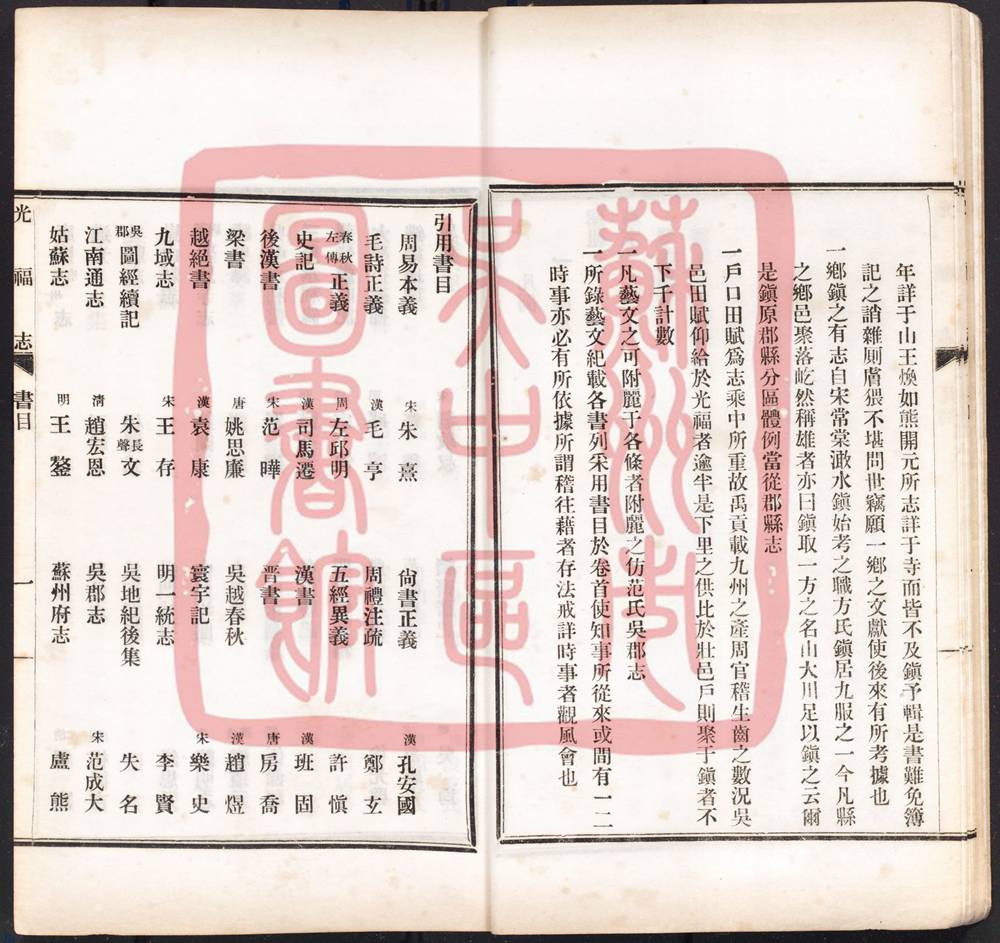 年詳于山王煥如熊開元所志詳于寺而皆不及鎮予輯是書難免簿
記之誚雜則膚猥不堪問世竊願一鄉之文獻使後來有所考據也
一鄉鎮之有志自宋常棠澉水鎮始考之職方氏鎮居九服之一今凡縣
之鄉邑聚落屹然稱雄者亦曰鎮取一方之名山大川足以鎮之云爾
是鎮原郡縣分區體例當從郡縣志
一戶口田賦爲志乘中所重故禹貢載九州之產周官稽生齒之數況吳
邑田賦仰給於光福者逾半是下里之供比於壯邑戶則聚于鎮者不
下千計數
一凡藝文之可附麗于各條者附麗之仿范氏吳郡志
一所錄藝文紀載各書列采用書目於卷首使知事所從來或間有一二
時事亦必有所依據所謂稽往藉者存法戒詳時事者觀風會也
引用書目
周易本義 宋朱熹 尙書正義 漢孔安國
毛詩正義 漢毛亨 周禮注疏 鄭玄
春秋左傳正義 周左邱明 五經異義 許愼
史記 漢司馬遷 漢書 漢班固
後漢書 宋范曄 晋書 唐房喬
梁書 唐姚思廉 吳越春秋 漢趙煜
越絕書 漢袁康 寰宇記 宋樂史
九域志 宋王存 明一統志 李賢
吳郡圖經續記 朱長文 吳地紀後集 失名
江南通志 淸趙宏恩 吳郡志 宋范成大
姑蘇志 明王鏊 蘇州府志 盧熊
光福志 書目 一
蘇州市
吴中區
圖書館